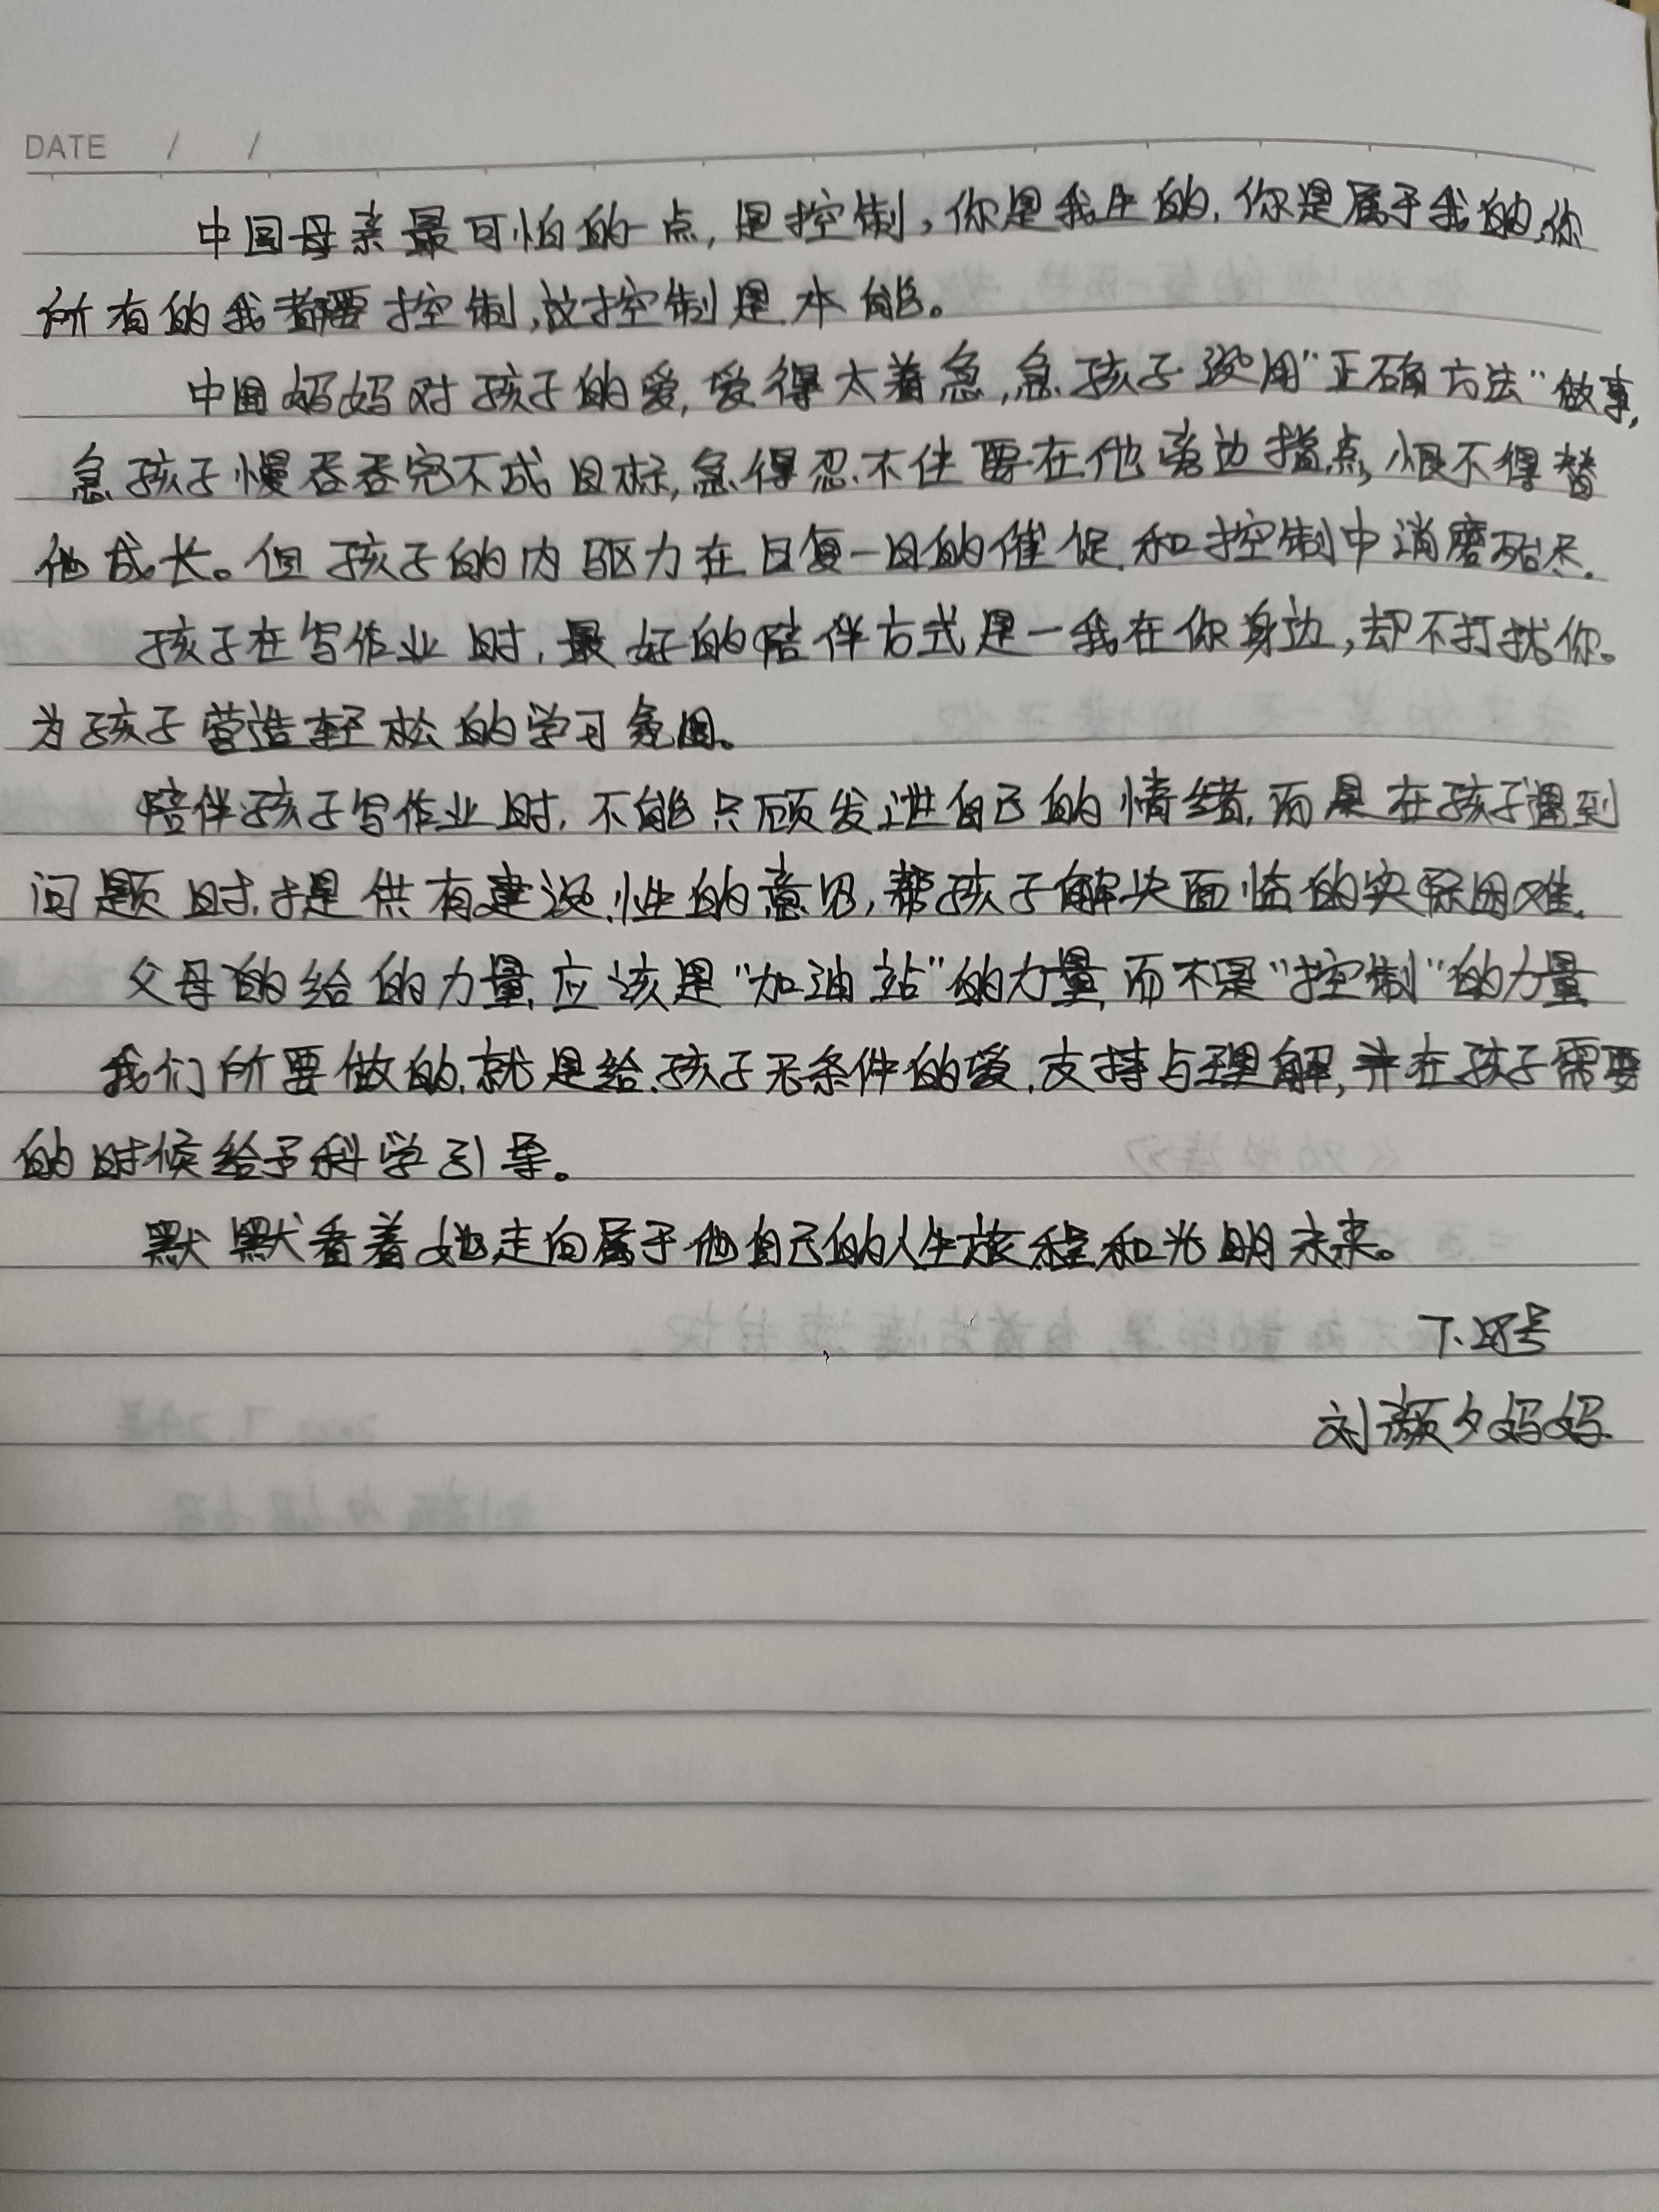 DATE / /
中国母亲最可怕的一点,是控制,你是我生的,你是属于我的,你
所有的我都要控制,故控制是本能。
中国妈妈对孩子的爱,爱得太着急,急孩子没用"正确方法"做事,
急孩子慢吞吞完不成目标,急得忍不住要在他旁边指点,恨不得替
他成长。但孩子的内驱力在日复一日的催促和控制中消磨殆尽.
孩子在写作业时,最好的陪伴方式是一我在你身边,却不打扰你。
为孩子营造轻松的学习氛围。
陪伴孩子写作业时,不能只顾发泄自己的情绪,而是在孩子遇到
问题时,提供有建设性的意见,帮孩子解决面临的实际困难.
父母的给的力量,应该是"加油站"的力量,而不是"控制"的力量
我们所要做的,就是给孩子无条件的爱,支持与理解,并在孩子需要
的时候给予科学引导。
默默看着她走向属于他自己的人生旅程和光明未来。
刘颜夕妈妈